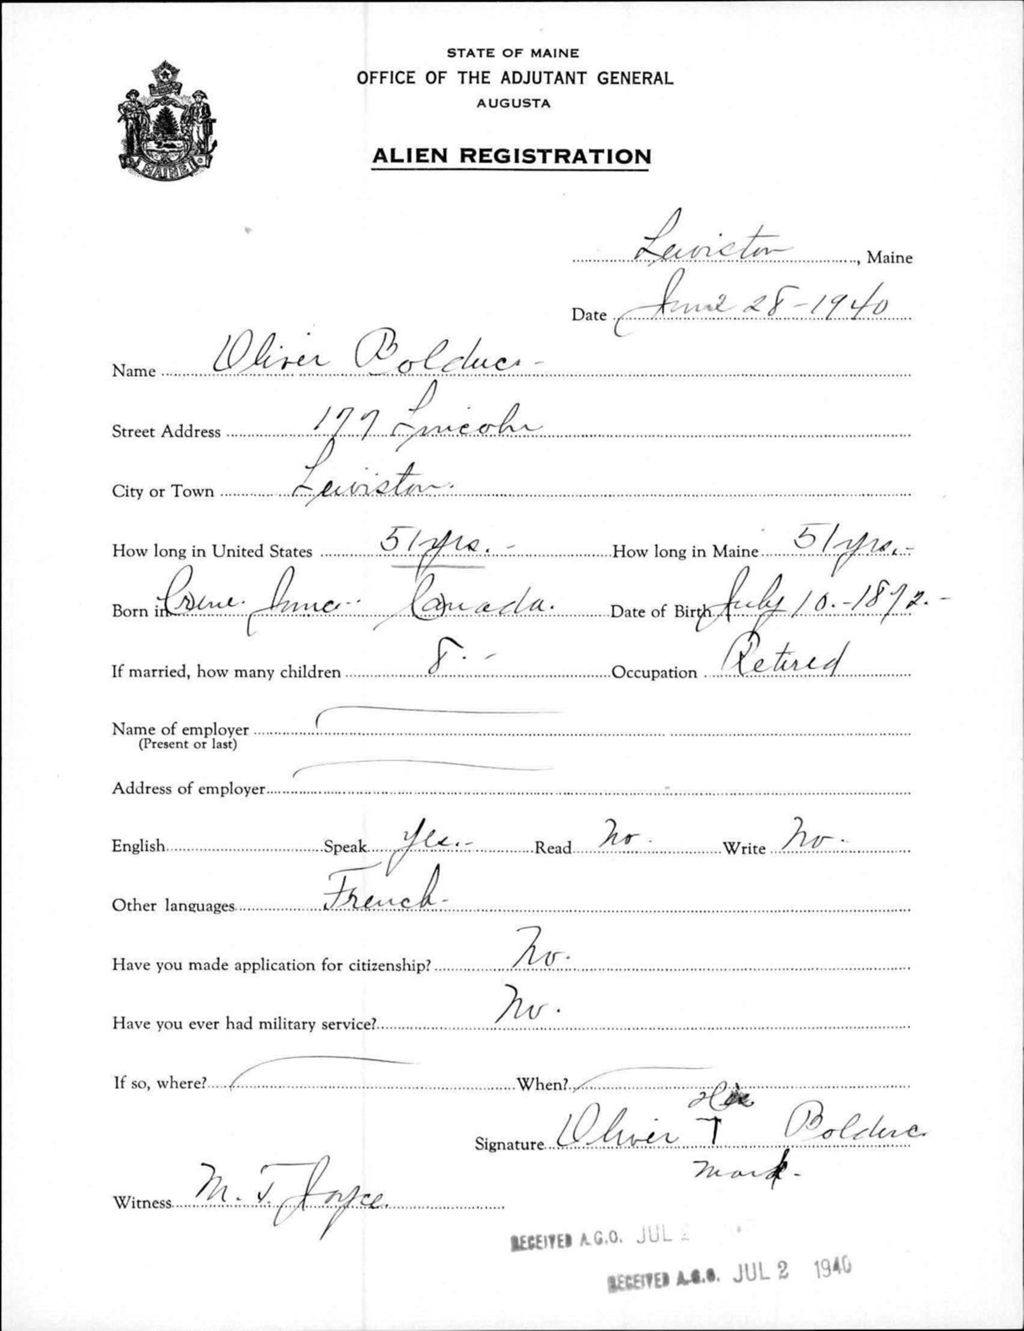 STATE OF MAINE
OFFICE OF THE ADJUTANT GENERAL
AUGUSTA
MAINE
ALIEN REGISTRATION
Lewiston, Maine
Date June 28-1940
Name Oliver Bolduc -
Street Address 177 Lincoln
City or Town Lewiston.
How long in United States 51 yrs. - How long in Maine 51 yrs. -
Born in Canada. Date of Birth July 10.-1872.-
If married, how many children 8. - Occupation Retired
Name of employer
(Present or last)
Address of employer
English Speak Yes.- Read No. Write No.
Other languages French-
Have you made application for citizenship? No.
Have you ever had military service? No.
If so, where? When?
His
Signature Oliver T Bolduc
mark-
Witness M. T. Joyce.
RECEIVED A.G.O. JUL 2
RECEIVED A.G.O. JUL 2 1940